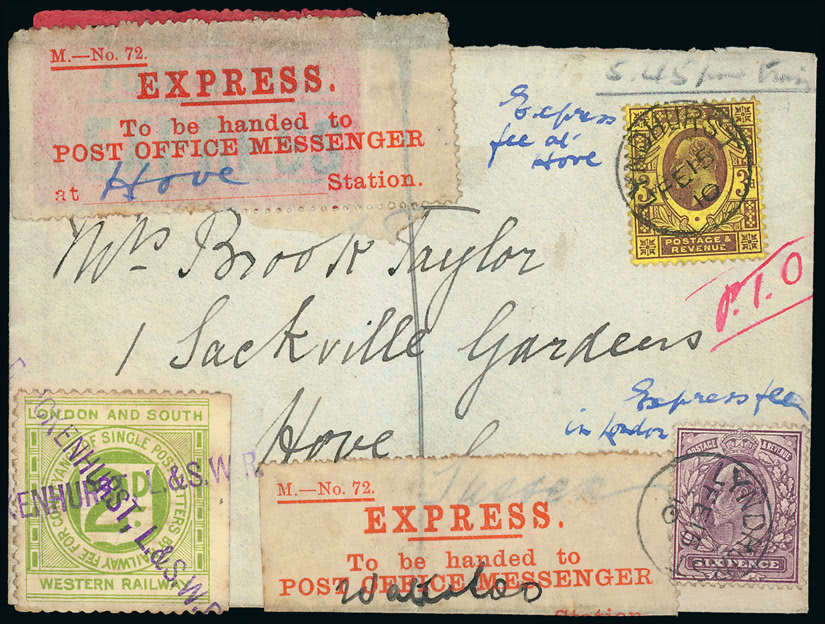 M.—No. 72.
EXPRESS.
To be handed to
POST OFFICE MESSENGER
at Hove Station.
5.45 pm Train
Express
fee at
Hove
LYNDHURST
FE 15
10
3D
POSTAGE &
REVENUE
P.T.O
Mrs Brook Taylor
1 Sackville Gardens
Hove
Sussex
Express fee
in London
LONDON AND SOUTH
RAILWAY FEE FOR CONVEYANCE OF SINGLE POST LETTERS BY
2D.
WESTERN RAILWAY
BROCKENHURST, L.&S.W.R.
KENHURST, L.&S.W.R.
M.—No. 72.
EXPRESS.
To be handed to
POST OFFICE MESSENGER
Waterloo
Station
POSTAGE & REVENUE
SIXPENCE
FE 15
10